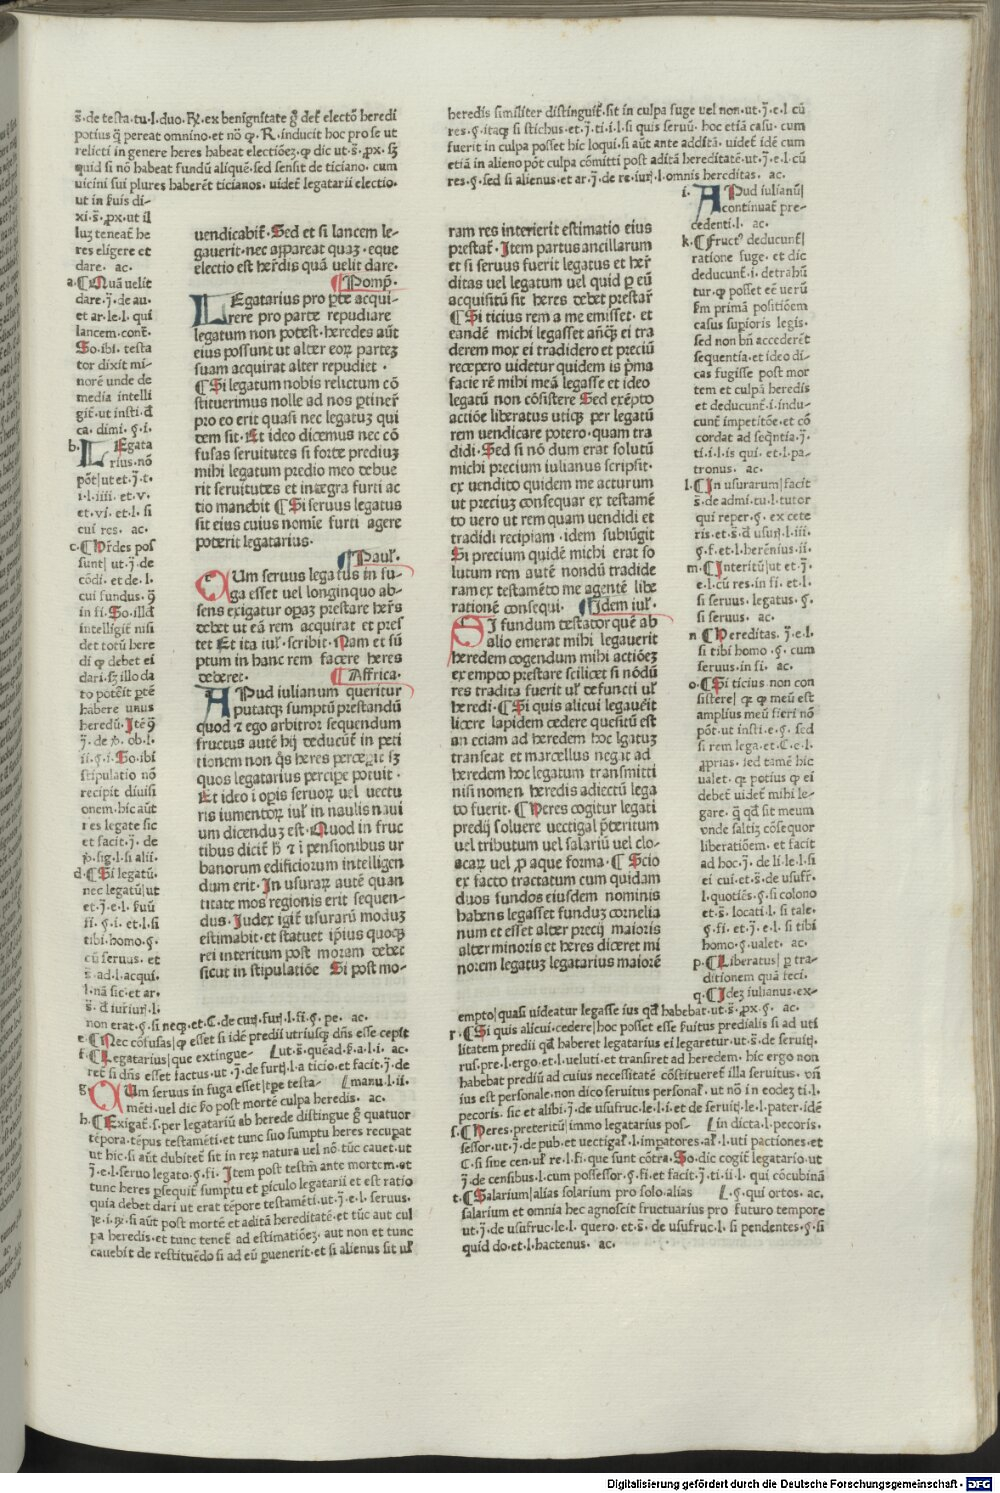 s̄. de testa. tu. l. duo. R̄. ex benignitate g̊ det̄ electō heredi
potius q̄ pereat omnino. et nō ꝙ. R. inducit hoc pro se ut
relicti in genere heres habeat electiōez. ꝙ dic ut. s̄. ꝓx. sꝫ
quid si nō habeat fundū aliquē. sed sensit de ticiano. cum
uicini sui plures haberēt ticianos. uidet̄ legatarii electio.
ut in fuis di-
xi. s̄. ꝓx. ut il
luz teneat̄ he
res eligere et
dare. ac.
a. Quā uelit
dare. j̄. de au.
et ar. le. l. qui
lancem. cont̄.
So. ibi. testa
tor dixit mi-
norē unde de
media intelli
git̄. ut insti. d̄
ca. dimi. §. i.
b. LEgata
rius. nō
pōt ut et. j̄. t.
i. l. iiii. et. v.
et. vi. et. l. si
cui res. ac.
c. Hr̄des pos
sunt ut. j̄. de
cōdi. et de. l.
cui fundus. ꝯ
in fi. So. illd̄
intelligit̄ nisi
det totū here
di ꝙ debet ei
dari. sꝫ illo da
to potēit ꝑtē
habere unus
heredū. Itē ꝯ
j̄. de ꝟ. ob. l.
ii. §. i. So. ibi
stipulatio nō
recipit diuisi
onem. hic aūt
res legate sic
et facit. j̄. de
ꝟ. sig. l. si alii.
d. Si legatū.
nec legatū ut
et. j̄. e. l. fuū
fi. §. i. et. l. si
tibi. homo. §.
cū seruus. et
s̄. ad. l. acqui.
l. nā sic. et ar.
s̄. d̄ iurīurj̄. l.
non erat. §. si neqꝫ. et. C. de curj̄. furj̄. l. fi. §. pe. ac.
e. Nec cōfusas ꝙ esset si idē predii utriusqꝫ dn̄s esse cepit
f. Legatarius que extingue- ut. s̄. quēad. ꝟ. a. l. i. ac.
ret̄ si dn̄s esset factus. ut. j̄. de furtj̄. l. a ticio. et facit. j̄. de
g. CUm seruus in fuga esset tꝑe testa- manu. l. ii.
mēti. uel dic ꝟo post mortē culpa heredis. ac.
h. Exigat̄. s. per legatariū ab herede distingue g̊ quatuor
tēpora. tēpus testamēti. et tunc suo sumptu heres recuꝑat
ut hic. si aut dubitet̄ sit in reꝝ natura uel nō. tūc cauet. ut
j̄. e. l. seruo legato. §. fi. Item post testm̄ ante mortem. et
tunc heres ꝑsequit̄ sumptu et ꝑiculo legatarii et est ratio
quia debet dari ut erat tēpore testamēti. ut. j̄. e. l. seruus.
ꝶe. i. ꝶ. si aūt post mortē et aditā hereditatē. et tūc aut cul
pa heredis. et tunc tenet̄ ad estimatiōeꝫ. aut non et tunc
cauebit de restituēdo si ad eū ꝑuenerit. et si alienus sit ul̄
uendicabit̄. Sed et si lancem le-
gauerit. nec apꝑareat quaꝫ. eque
electio est her̄dis quā uelit dare.
Pomp̄.
LEgatarius pro ꝑte acqui-
rere pro parte repudiare
legatum non potest. heredes aūt
eius possunt ut alter eoꝝ parteꝫ
suam acquirat alter repudiet.
Si legatum nobis relictum cō
stituerimus nolle ad nos ꝑtiner̄
pro eo erit quasi nec legatuꝫ qui
dem sit. Et ideo dicemus nec cō
fusas seruitutes si forte prediuꝫ
mihi legatum predio meo debue
rit seruitutes et integra furti ac
tio manebit Si seruus legatus
sit eius cuius nomīe furti agere
poterit legatarius.
Paul̄.
CUm seruus legatus in fu-
ga esset uel longinquo ab-
sens exigatur opaꝫ prestare her̄s
debet ut eā rem acquirat et pres
tet Et ita iul̄. scribit. Nam et sū
ptum in hanc rem facere heres
deberet. Affrica.
APud iulianum queritur
putatqꝫ sumptū prestandū
quod ⁊ ego arbitror sequendum
fructus autē hij deducūt̄ in peti
tionem non q̊s heres perceꝑit sꝫ
quos legatarius percipe potuit.
Et ideo i opis seruoꝝ uel uectu
ris iumentoꝝ iul̄ in naulis naui
um dicenduꝫ est. Quod in fruc
tibus dicit̄ h̄ ⁊ i pensionibus ur
banorum edificiorum intelligen
dum erit. In usuraꝝ autē quan
titate mos regionis erit sequen-
dus. Iudex igit̄ usurarū moduꝫ
estimabit. et statuet ip̄ius quoqꝫ
rei interitum post moram debet
sicut in stipulatiōe Si post mo-
heredis similiter distinguit̄. sit in culpa fuge uel non. ut. j̄. e. l cū
res. §. itaqꝫ si stichus. et. j̄. ti. i. l. si quis seruū. hoc etiā casu. cum
fuerit in culpa posset hic loqui. si aūt ante additā. uidet̄ idē cum
etiā in alieno pōt culpa cōmitti post aditā hereditatē. ut. j̄. e. l. cū
res. §. sed si alienus. et ar. j̄. de re. iurj̄. l. omnis hereditas. ac.
ram res interierit estimatio eius
prestat̄. Item partus ancillarum
et si seruus fuerit legatus et her̄
ditas uel legatum uel quid ꝑ eū
acquisitū sit heres debet prestar̄
Si ticius rem a me emisset. et
eandē michi legasset anq̄ꝫ ei tra
derem mox ei tradidero et preciū
recepero uidetur quidem is pr̄ma
facie rē mihi meā legasse et ideo
legatū non cōsistere Sed exēpto
actiōe liberatus utiqꝫ per legatū
rem uendicare potero. quam tra
didi. Sed si nō dum erat solutū
michi precium iulianus scripsit.
ex uendito quidem me acturum
ut preciuꝫ consequar ex testamē
to uero ut rem quam uendidi et
tradidi recipiam. idem subiūgit
Si precium quidē michi erat so
lutum rem autē nondū tradide
ram ex testamēto me agentē libe
rationē consequi. Idem iul̄.
SI fundum testator quē ab
alio emerat mihi legauerit
heredem cogendum mihi actiōeꝫ
ex empto prestare scilicet si nōdū
res tradita fuerit ul̄ defuncti ul̄
heredi. Si quis alicui legauēit
licere lapidem cedere quesitū est
an eciam ad heredem hoc lgatuꝫ
transeat et marcellus negat ad
heredem hoc legatum transmitti
nisi nomen heredis adiectū lega
to fuerit. Heres cogitur legati
predij soluere uectigal pr̄teritum
uel tributum uel salariū uel clo-
acaꝝ uel ꝓ aque forma. Scio
ex facto tractatum cum quidam
duos fundos eiusdem nominis
habens legasset funduꝫ cornelia
num et esset alter precij maioris
alter minoris et heres diceret mi
norem legatuꝫ legatarius maiorē
i. APud iulianū
a continuat̄ pre-
cedenti. l. ac.
k. Fruct᷒ deducunt̄
ratione fuge. et dic
deducunt̄. i. detrahū
tur. ꝙ posset eē uerū
ẜm primā positiōem
casus supioris legis.
sed non bn̄ accederēt
sequentia. et ideo di-
cas fugisse post mor
tem et culpā heredis
et deducunt̄. i. indu-
cunt̄ impetitōe. et cō
cordat ad seq̄ntia. j̄.
ti. i. l. is qui. et. l. pa-
tronus. ac.
l. In usurarum facit
s̄. de admi. tu. l. tutor
qui reper. §. ex cete
ris. et. s̄. d̄ usurj̄. l. iii.
§. f. et. l. herēnius. ii.
m. Interitū ut et. j̄.
e. l. cū res. in fi. et. l.
si seruus. legatus. §.
si seruus. ac.
n Hereditas. j̄. e. l.
si tibi homo. §. cum
seruus. in fi. ac.
o. Si ticius non con
sistere qꝛ ꝙ meū est
amplius meū fieri nō
pōt. ut insti. e. §. sed
si rem lega. et. C. e. l.
ꝓprias. sed tamē hic
ualet. qꝛ potius ꝙ ei
debet̄ uidet̄ mihi le-
gare. q̄ qd̄ sit meum
vnde saltiꝫ cōsequor
liberatiōem. et facit
ad hoc. j̄. de li. le. l. si
ei cui. et. s̄. de usufr̄.
l. quotiēs. §. si colono
et. s̄. locati. l. si tale.
§. fi. et. j̄. e. l. si tibi
homo. §. ualet. ac.
p. Liberatus ꝑ tra-
ditionem quā feci.
q. Ideꝫ iulianus. ex-
empto quasi uideatur legasse ius qd̄ habebat. ut. s̄. ꝓx. §. ac.
r. Si quis alicui. cedere hoc posset esse fuitus predialis si ad uti
litatem predii qd̄ haberet legatarius ei legaretur. ut. s̄. de seruitj̄.
rus. pre. l. ergo. et. l. ueluti. et transiret ad heredem. hic ergo non
habebat prediū ad cuius necessitatē cōstitueret̄ illa seruitus. vn̄
ius est personale. non dico seruitus personal̄. ut nō in eodeꝫ ti. l.
pecoris. sic et alibi. j̄. de usufruc. le. l. i. et de seruitj̄. le. l. pater. idē
s. Heres. preteritū immo legatarius pos- in dicta. l. pecoris.
sessor. ut. j̄. de pub. et uectigal̄. l. impatores. al̄. l. uti pactiones. et
C. si sine cen. ul̄ re. l. fi. que sunt cōtra. So. dic cogit̄ legatario. ut
j̄. de censibus. l. cum possessor. §. fi. et facit. j̄. ti. ii. l. qui cōcubinā
t. Salarium alias solarium pro solo. alias l. §. qui ortos. ac.
salarium et omnia hec agnoscit fructuarius pro futuro tempore
ut. j̄. de usufruc. le. l. quero. et. s̄. de usufruc. l. si pendentes. §. si
quid do. et. l. hactenus. ac.
Digitalisierung gefördert durch die Deutsche Forschungsgemeinschaft - DFG